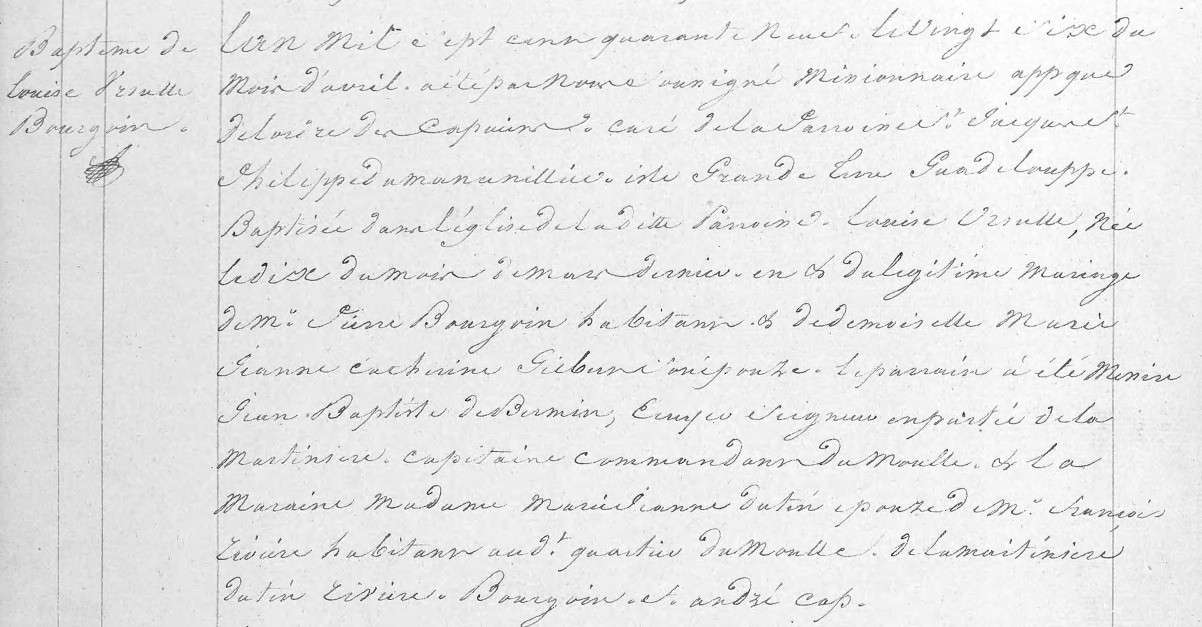 Baptême de
Louise Ursulle
Bourgoin.
L'an Mil sept cent quarante Neuf. le Vingt Six du
Mois d'avril. a été par Nous Soussigné Missionnaire app que
de l'ordre des Capucins & curé de la Parroisse St. Jacques St.
Philippe du mancenillier. isle Grande terre Guadelouppe.
Baptisée dans l'église de laditte Parroisse. Louise Ursulle, Née
le dix du mois de mars dernier. en & du legitime Mariage
de Mr. Pierre Bourgoin habitant. & de demoiselle Marie
Jeanne Catherine Gilbert Son épouze. le parrain a été Messire
Jean Baptiste de Bermin, Ecuyer Seigneur en partie de la
Martiniere. Capitaine commandant du Moulle. & la
Maraine Madame Marie Jeanne dutin epouze de Mr. François
Riviere habitant audt. quartier du Moulle. de la martiniere
dutin Riviere. Bourgoin. et. andré cap.